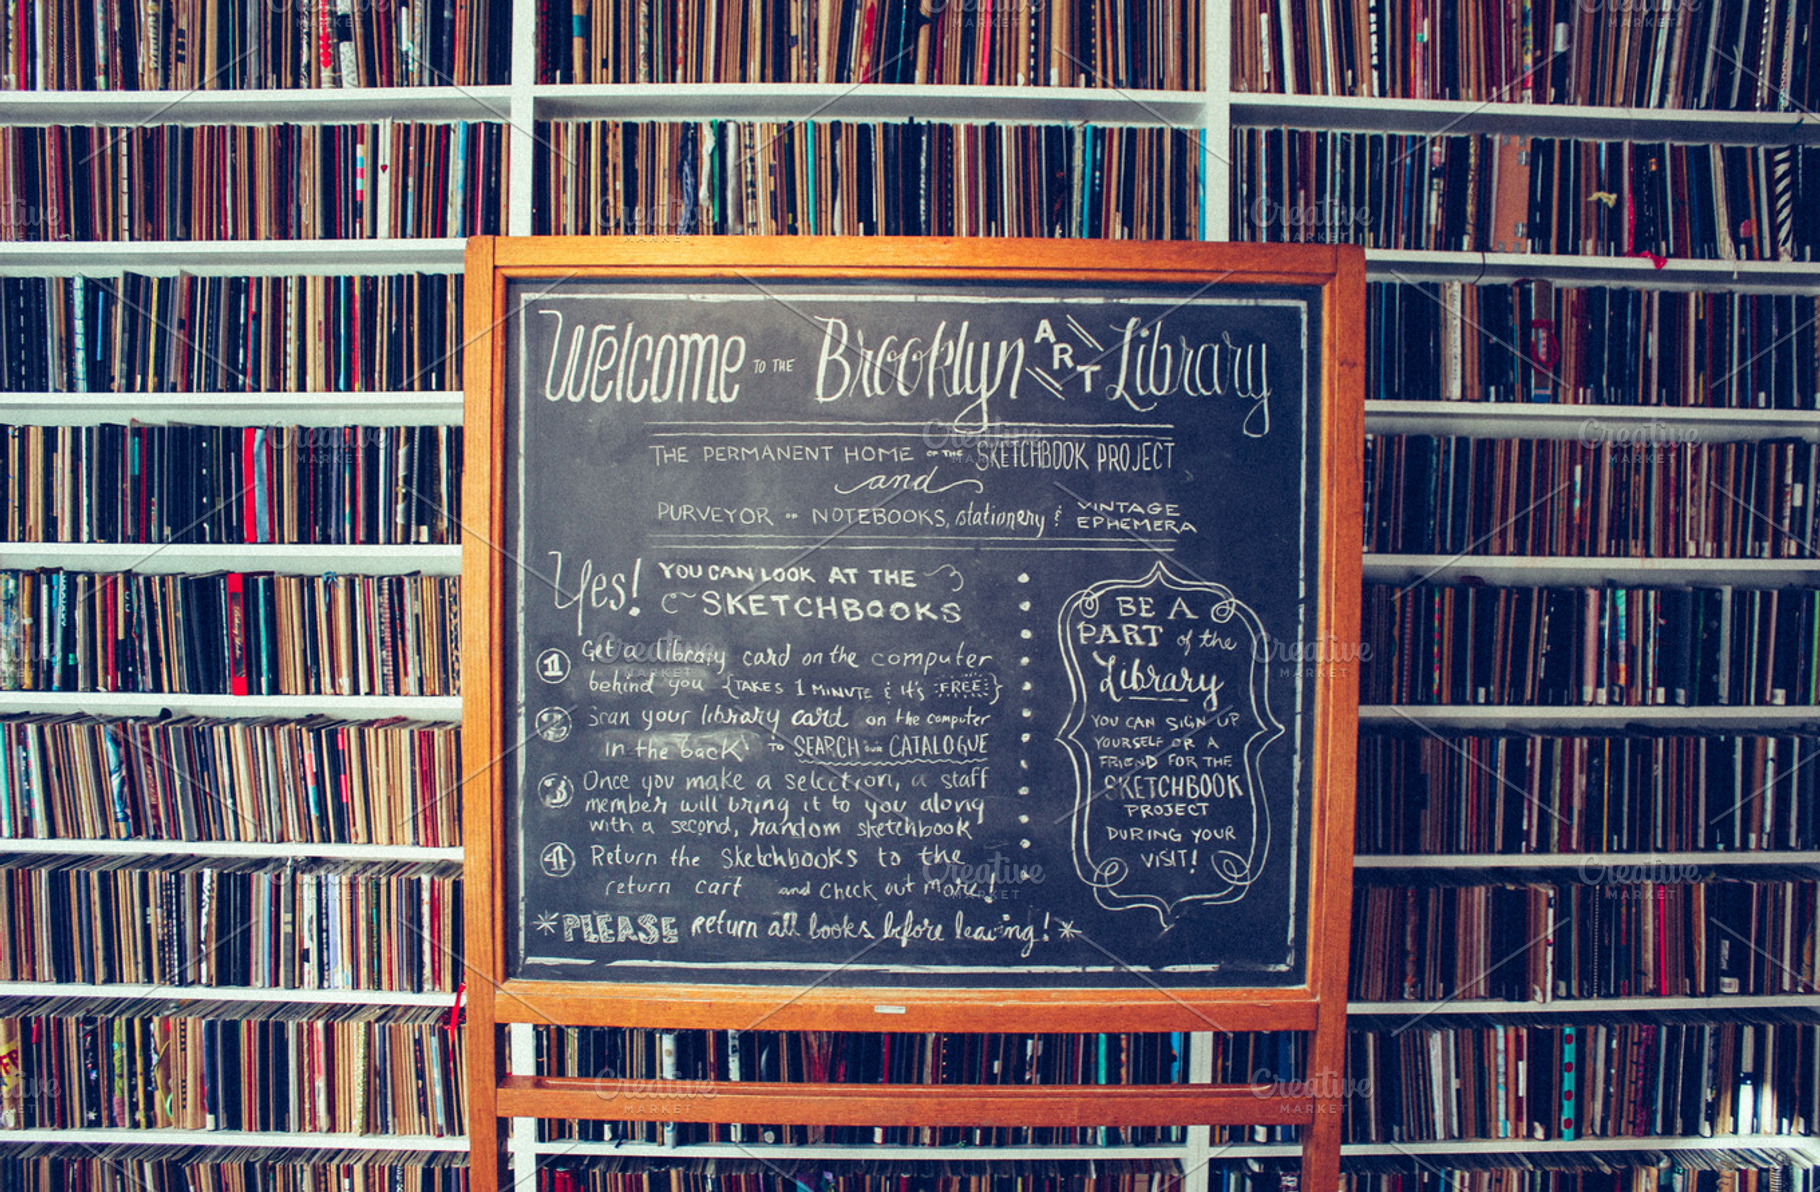 Welcome TO THE Brooklyn ART Library
THE PERMANENT HOME OF THE SKETCHBOOK PROJECT
and
PURVEYOR OF NOTEBOOKS, stationery & VINTAGE EPHEMERA
Yes! YOU CAN LOOK AT THE
SKETCHBOOKS
1 Get a library card on the computer
behind you {TAKES 1 MINUTE & it's FREE}
2 Scan your library card on the computer
in the back to SEARCH OUR CATALOGUE
3 Once you make a selection, a staff
member will bring it to you along
with a second, random sketchbook
4 Return the sketchbooks to the
return cart and check out more!
*PLEASE return all books before leaving!*
BE A
PART of the
Library
YOU CAN SIGN UP
YOURSELF OR A
FRIEND FOR THE
SKETCHBOOK
PROJECT
DURING YOUR
VISIT!
Creative
MARKET